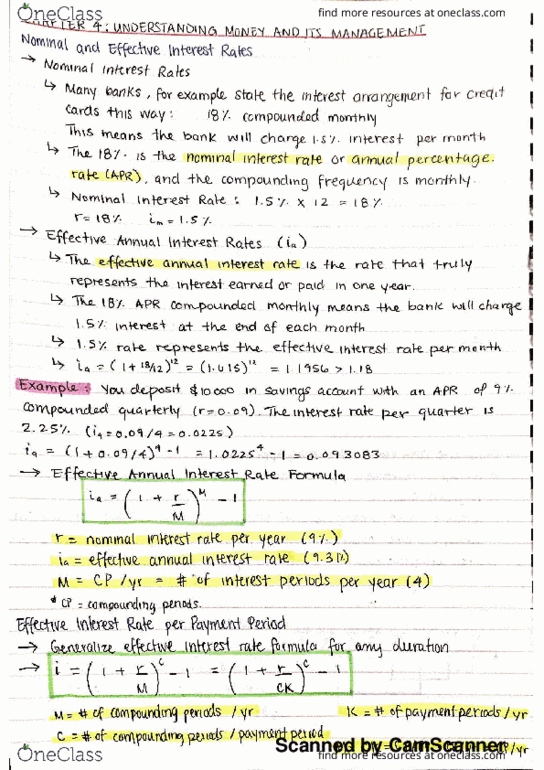 OneClass
find more resources at oneclass.com
CHAPTER 4: UNDERSTANDING MONEY AND ITS MANAGEMENT
Nominal and Effective Interest Rates
→ Nominal Interest Rates
↳ Many banks, for example state the interest arrangement for credit
cards this way: 18% compounded monthly
This means the bank will charge 1.5% interest per month
↳ The 18% is the nominal interest rate or annual percentage
rate (APR), and the compounding frequency is monthly.
↳ Nominal Interest Rate: 1.5% x 12 = 18%
r = 18% im = 1.5%
→ Effective Annual Interest Rates (ia)
↳ The effective annual interest rate is the rate that truly
represents the interest earned or paid in one year.
↳ The 18% APR compounded monthly means the bank will charge
1.5% interest at the end of each month
↳ 1.5% rate represents the effective interest rate per month
↳ ia = (1 + 18/12)^12 = (1.015)^12 = 1.1956 > 1.18
Example: You deposit $10000 in savings account with an APR of 9%
compounded quarterly (r=0.09). The interest rate per quarter is
2.25% (iq=0.09/4=0.0225)
ia = (1+0.09/4)^4 - 1 = 1.0225^4 - 1 = 0.093083
→ Effective Annual Interest Rate Formula
ia = (1 + r/M)^M - 1
r = nominal interest rate per year (9%)
ia = effective annual interest rate (9.31%)
M = CP/yr = # of interest periods per year (4)
* CP = compounding periods.
Effective Interest Rate per Payment Period
→ Generalize effective interest rate formula for any duration
→ i = (1 + r/M)^C - 1 = (1 + r/CK)^C - 1
M = # of compounding periods / yr K = # of payment periods / yr
C = # of compounding periods / payment period
Scanned by CamScanner
OneClass
find more resources at oneclass.com